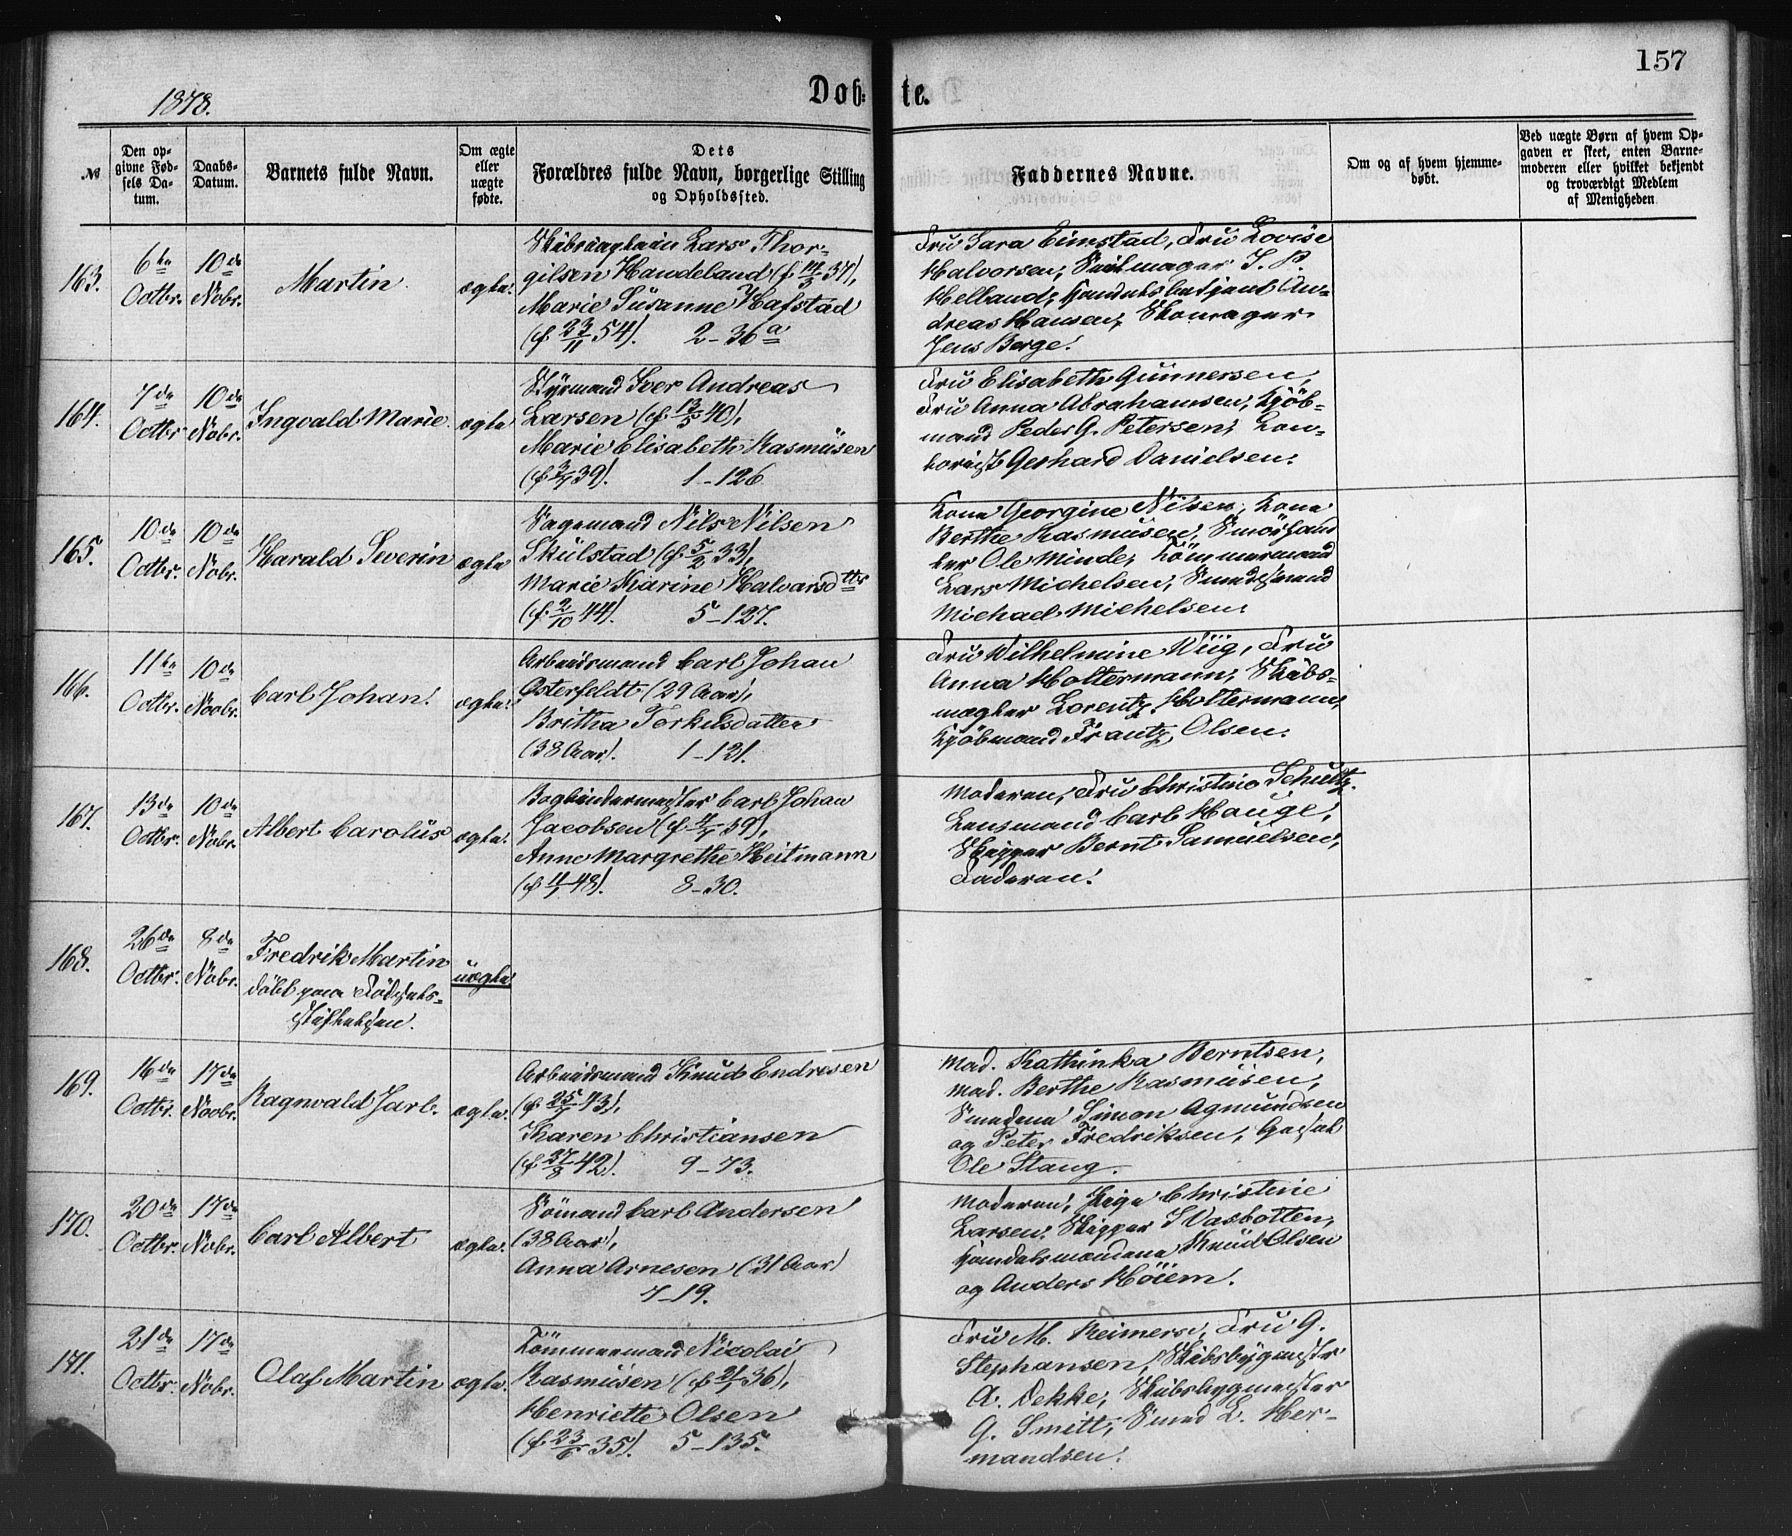 157
1878.
Døb- te.
№
Den op-
givne Fød-
sels Da-
tum.
Daabs-
Datum.
Barnets fulde Navn.
Om ægte
eller
uægte
fødte.
Dets
Forældres fulde Navn, borgerlige Stilling
og Opholdssted.
Faddernes Navne.
Om og af hvem hjemme-
døbt.
Ved uægte Børn af hvem Op-
gaven er skeet, enten Barne-
moderen eller hvilket bekjendt
og troværdigt Medlem
af Menigheden
163.
6te
Octbr.
10de
Nobr.
Martin.
ægte.
Lars Thor-
gilsen Haudeland (f. 37),
Marie Süsanne Hafstad
(f. 23/11 54). 2-36a
Fru Sara Eimstad, Fru Lovise
Halvorsen, Seilmager I. P.
Helland, An-
dreas Hansen, Skomager
Jens Berge.
164.
7de
Octbr.
10de
Nobr.
Ingvald Marie.
ægte
Styrmand Iver Andreas
Larsen (f. 13/5 40),
Marie Elisabeth Rasmüsen
(f. 39). 1-126
Fru Elisabeth Gunnersen,
Fru Anna Abrahamsen, Kjöb-
mand Peder G. Petersen, Kon-
torist Gerhard Danielsen.
165.
10de
Octbr.
10de
Nobr.
Harald Severin
ægte
Nils Nilsen
Skülstad (f. 5/2 33),
Marie Karine Halvarsdttr
(f. 2/10 44). 5-127.
Kone Georgine Nilsen, Kone
Berthe Rasmüsen,
Ole Minde, Tömmermand
Lars Michelsen,
Michael Michelsen.
166.
11te
Octbr.
10de
Noobr.
Carl Johan.
ægte.
Arbeidsmand Carl Johan
Osterfeldt (29 Aar),
Britha Torkelsdatter
(38 Aar). 1-121.
Fru Wilhelmine Wiig, Fru
Anna Holtermann, Skibs-
mægler Lorentz Holtermann,
Kjöbmand Frantz Olsen.
167.
13de
Octbr.
10de
Nobr.
Albert Carolüs
ægte.
Bogbindermester Carl Johan
Jacobsen (f. 39),
Anne Margrethe Heitmann
(f. 48). 8-30.
Moderen, Fru Christine Schultz.
Lensmand Carl Hauge,
Skipper Bernt Samuelsen,
Faderen.
168.
26de
Octbr.
8de
Nobr.
Fredrik Martin
döbt paa Födsels-
stiftelsen.
uægte
169.
16de
Octbr.
17de
Noobr.
Ragnvald Jarl.
ægte.
Arbeidsmand Knud Endresen
(f. 43),
Karen Christiansen
(f. 27/8 42). 9-73.
Mad. Kathinka Berntsen,
Mad. Berthe Rasmüsen,
Simon Agmundsen
og Peter Fredriksen,
Ole Stang.
170.
20de
Octbr.
17de
Nobr.
Carl Albert
ægte.
Sömand Carl Andersen
(38 Aar),
Anna Arnesen (31 Aar)
7-19.
Moderen, Pige Christine
Larsen, Skipper I Vasbotten,
Knüd Olsen
og Anders Höiem.
171.
21de
Octbr.
17de
Nobr.
Olaf Martin
ægte.
Tömmermand Nicolai
Rasmüsen (f. 36),
Henriette Olsen
(f. 23/6 35). 5-135.
Fru M. Reimers, Fru G.
Stephansen, Skibsbygmester
A. Dekke, Skibsbygmester
G. Smitt, Smed L. Her-
mandsen.